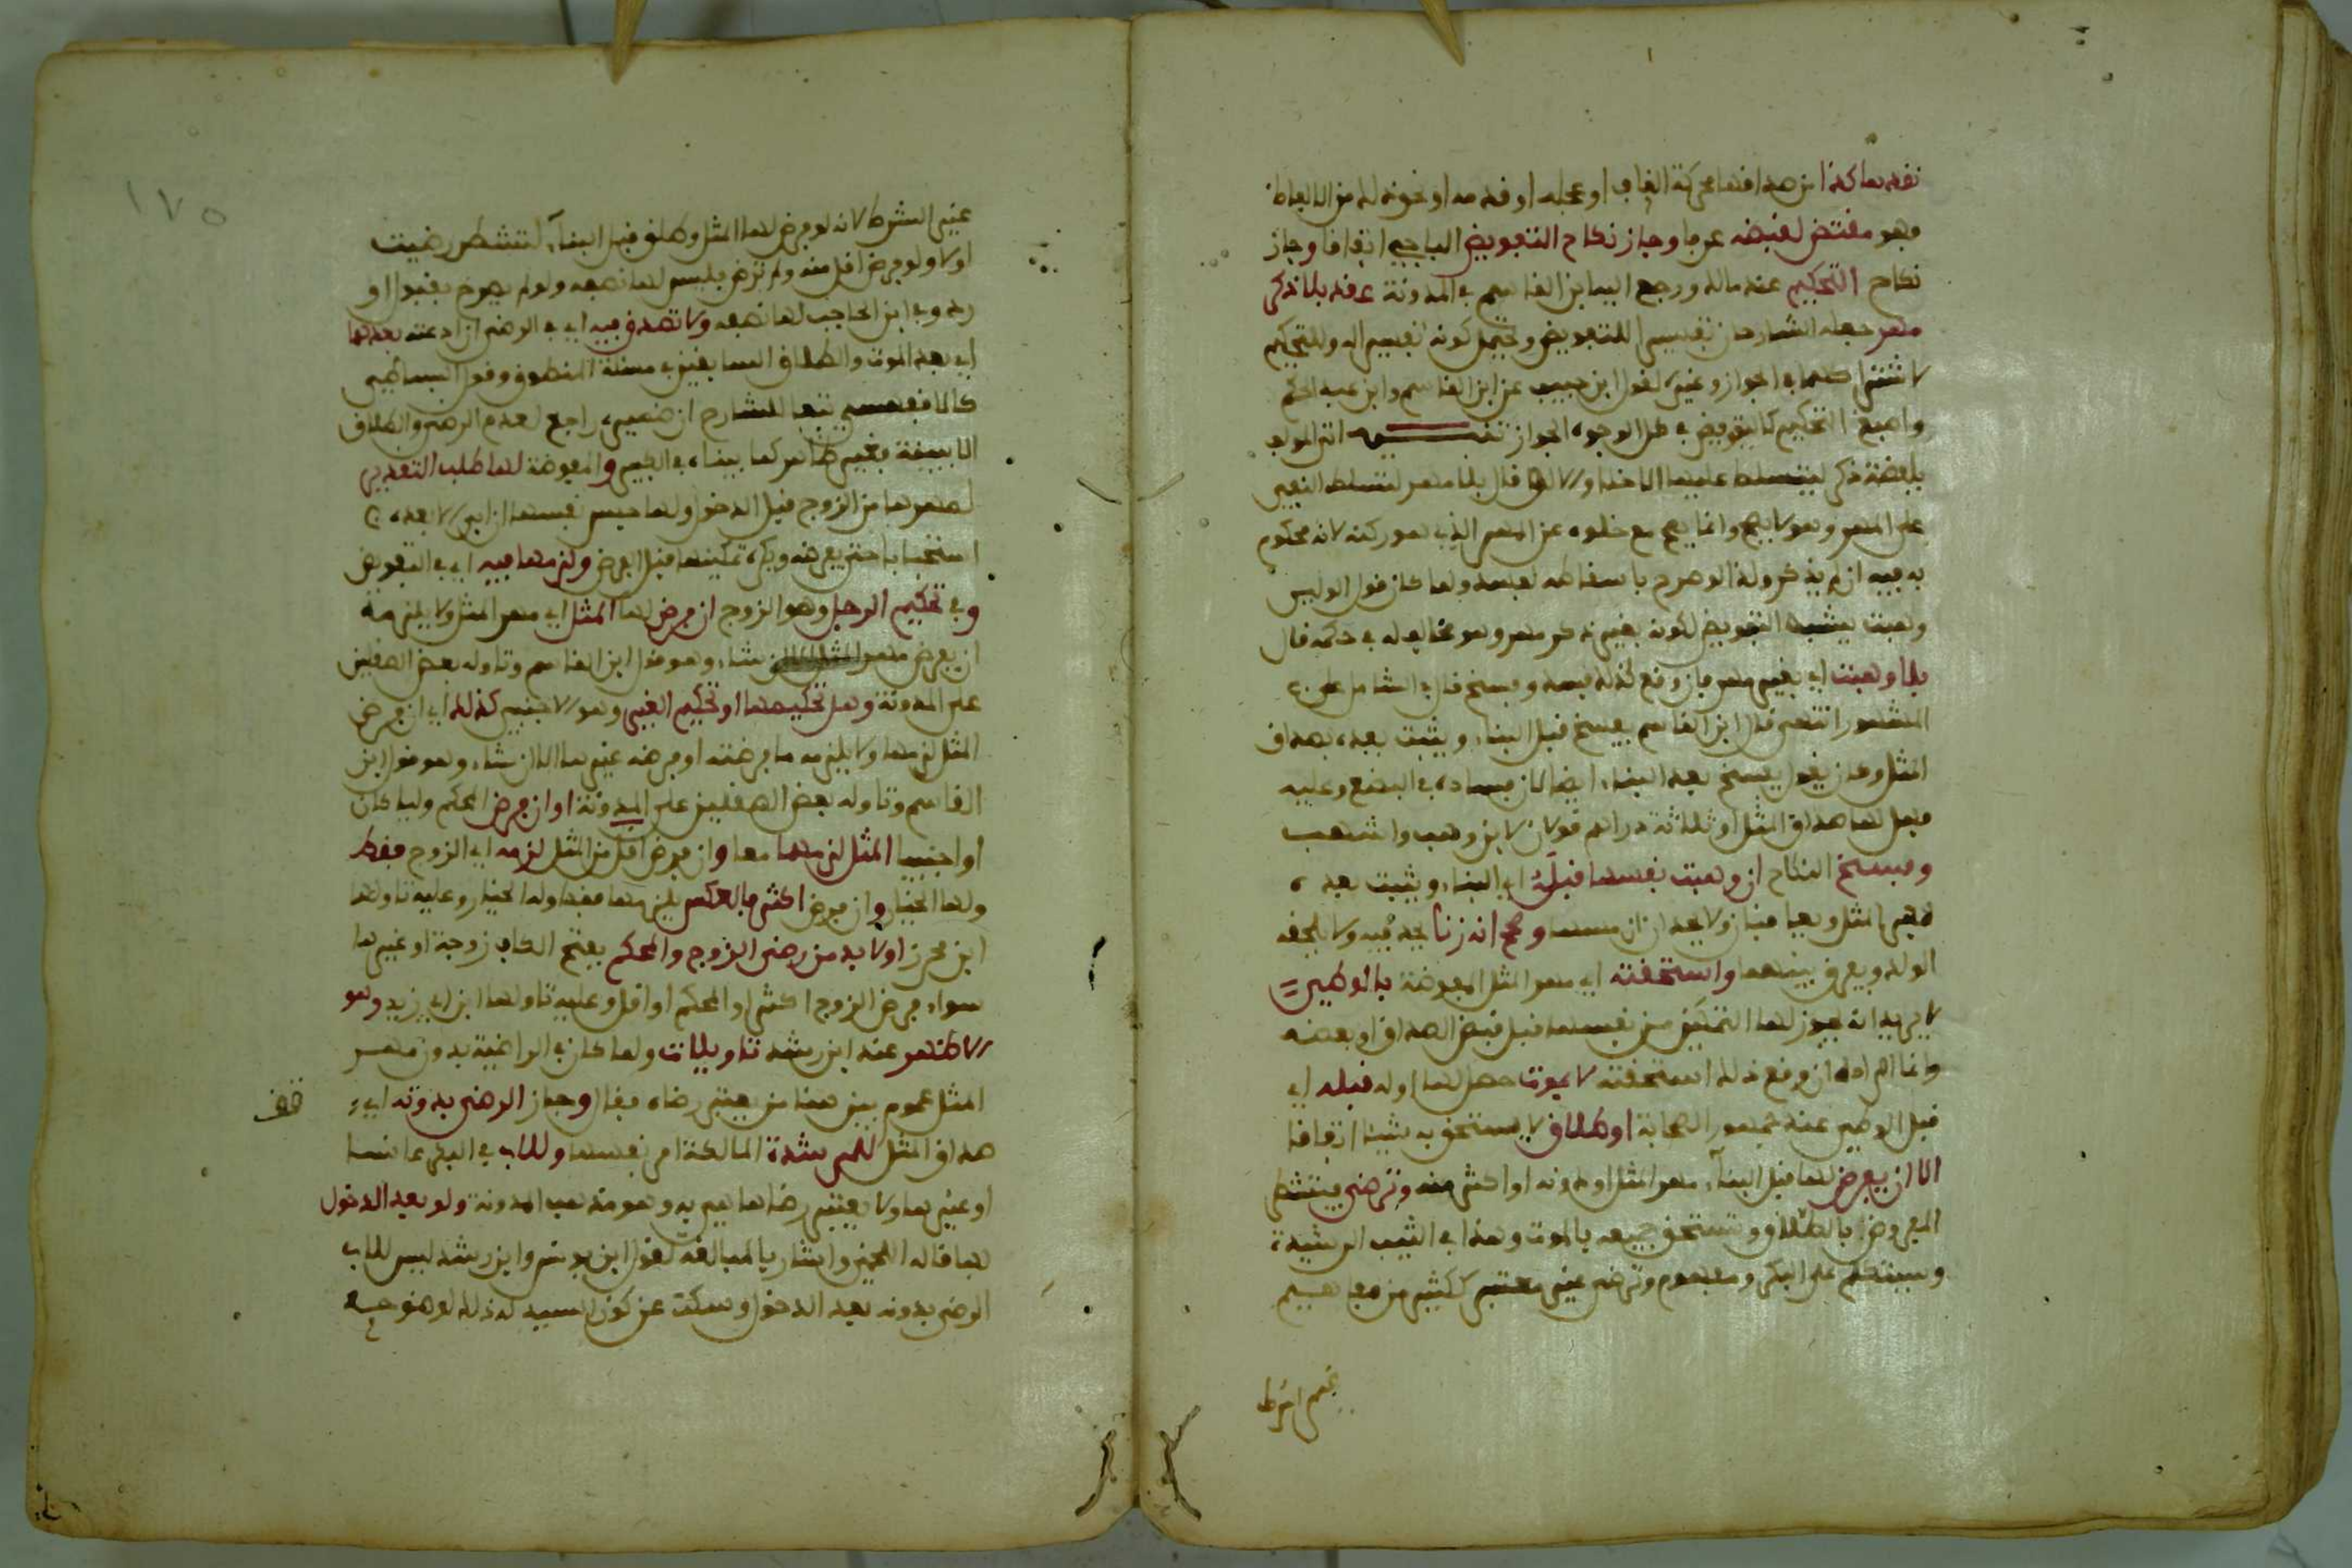 نقده معا كذا من صداقها محركة القاف او عجله او قدمه او نحو ذلك من الالفاظ
فهو مقتض لقبضه عرفا وجاز نكاح التفويض الباجي اتفاقا وجاز
نكاح التحكيم عند مالك ورجع اليه ابن القاسم في المدونة عقد بلا ذكر
مهر جعله الشارحان تفسيرا للتفويض ويحتمل كونه تفسيرا له وللتحكيم
لاشتراكهما في الجواز وغيره لقول ابن حبيب عن ابن القاسم وابن عبد الحكم
واصبغ التحكيم كالتفويض في كل الوجوه الجواز تنبيه اتى المولف
بلفظة ذكر ليتسلط عليها الاخذ ولانها قال بلا مهر لتسلط النفي
على المهر وهو لا يصح وانما يصح مع خلوه عن المهر الذي هو ركنه لانه محكوم
به فيه ان لم يذكر ولذا لو صرح باسقاطه لفسد ولما كان قول الولي
وهبت يشبه التفويض لكونه بغير ذكر مهر وهو مخالف له في حكمه قال
بلا وهبت اي بغير مهر فان وقع كذلك فسد وفسخ قال في الشامل على
المشهور انتهى قال ابن القاسم يفسخ قبل البناء ويثبت بعده بصداق
المثل وكان يقول يفسخ بعد البناء ايضا لان فساده في البضع وعليه
فهل لها صداق المثل او ثلاثة دراهم قولان لابن وهب واشهب
وفسخ النكاح ان وهبت نفسها قبله اي البناء ويثبت بعده
بمهر المثل وبها فيان ولا يحد ان مسها وصحح انه زنا يحد فيه ولا يلحقه
الولد ويفرق بينهما واستحقته اي مهر المثل المفوضة بالوطء
لا يريد انه يجوز لها التمكين من نفسها قبل قبض الصداق او بعضه
وانما المراد ان وقع ذلك استحقته لا بموت حصل لها او له قبله اي
قبل الوطء عند جمهور الصحابة او طلاق لا يستحق به شيئا اتفاقا
الا ان يفرض لها قبل البناء مهر المثل او دونه او اكثر منه وترضى فيتشطر
المفروض بالطلاق وتستحق جميعه بالموت وهذا في الثيب الرشيدة
وسيتكلم على البكر ومفهوم وترضى غير معتبر ككثير من مفاهيم
غير الشرط
١٧٥
غير الشرط لانه لو فرض لها المثل وطلق قبل البناء لتشطر رضيت
اولا ولو فرض اقل منه ولم ترض فليس لها نصفه ولو لم يصرح بقبول او
رد وفي ابن الحاجب لها نصفه ولا تصدق فيه اي في الرضى ان ادعته بعدهما
اي بعد الموت والطلاق السابقين في مسئلة المنطوق وقول البساطي
كالاقفهسي تبعا للشارح ان ضميره راجع لعدم الرضى والطلاق
الا ببينة فغير ظاهر كما بيناه في الكبير والمفوضة لها طلب التقدير
لمهرها من الزوج قبل الدخول ولها حبس نفسها ان ابى لا بعده
استحبابا حتى يفرضه ويكره تمكينها قبل الفرض ولزمها فيه اي في التفويض
وفي تحكيم الرجل وهو الزوج ان فرض لها المثل اي مهر المثل ولا يلزمه
ان يفرض مهر المثل الا ان شاء وهو قول ابن القاسم وتاوله بعض الصقليين
على المدونة وهل تحكيمها او تحكيم الغير وهو الاجنبي كذلك اي ان فرض
المثل لزمها ولا يلزمه ما فرضته او فرضه غيرها الا ان شاء وهو قول ابن
القاسم وتاوله بعض الصقليين على المدونة او ان فرض المحكم وليا كان
او اجنبيا المثل لزمهما معا وان فرض اقل من المثل لزمه اي الزوج فقط
ولها الخيار وان فرض اكثر فالعكس يلزمها فقط وله الخيار وعليه تاولها
ابن محرز او لا بد من رضى الزوج والمحكم بفتح الكاف زوجة او غيرها
سواء فرض الزوج اكثر او المحكم او اقل وعليه تاولها ابن ابي زيد وهو
الاظهر عند ابن رشد تاويلات ولما كان في الراضية بدون مهر
المثل عموم بين هنا من يعتبر رضاه فقال وجاز الرضى بدونه اي
صداق المثل للمرشدة المالكة امر نفسها وللاب في البكر عانسا
او غيرها ولا يعتبر رضاها غير به وهو مذهب المدونة ولو بعد الدخول
بها قاله اللخمي واشار بالمبالغة لقول ابن يونس وابن رشد ليس للاب
الرضى بدونه بعد الدخول وسكت عن كون السيد له ذلك لوضوحه
قف